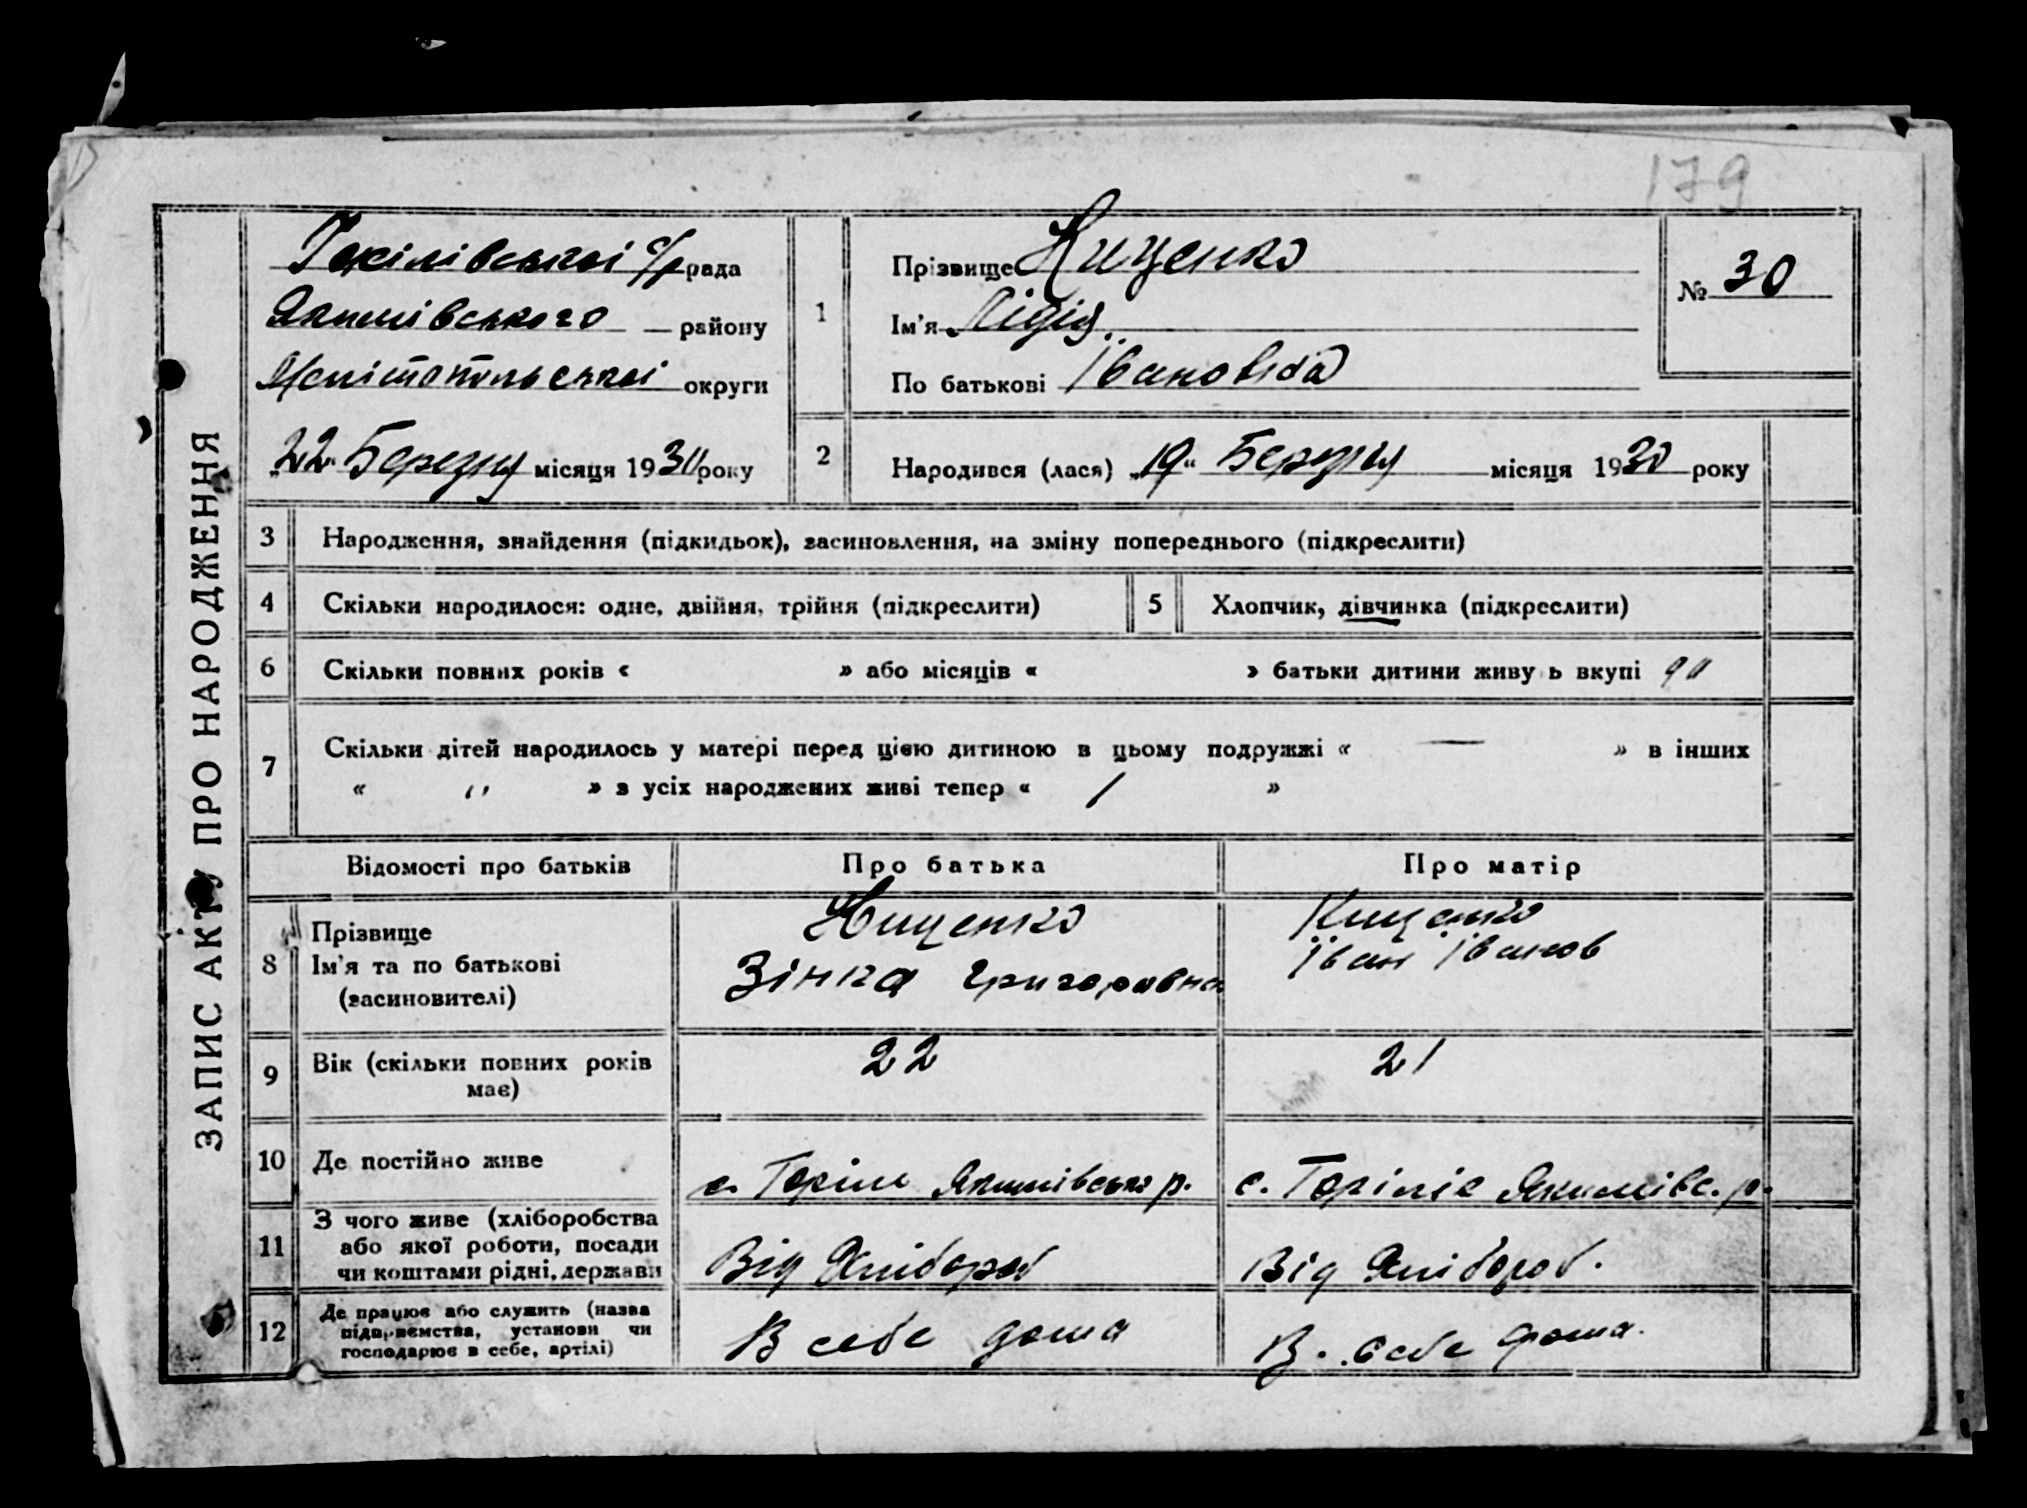 179
ЗАПИС АКТУ ПРО НАРОДЖЕННЯ
с/р рада
Якимівського району
Мелітопольської округи
„22“ Березня місяця 1930 року
1
Прізвище Нищенко
Ім'я Лідія
По батькові Івановна
№ 30
2
Народився (лася) „19“ Березня місяця 1930 року
3 Народження, знайдення (підкидьок), засиновлення, на зміну попереднього (підкреслити)
4 Скільки народилося: одне, двійня, трійня (підкреслити)
5 Хлопчик, дівчинка (підкреслити)
6 Скільки повних років « » або місяців « » батьки дитини живуть вкупі
7 Скільки дітей народилось у матері перед цією дитиною в цьому подружжі « — » в інших
« „ » з усіх народжених живі тепер « 1 »
Відомості про батьків Про батька Про матір
8 Прізвище
Ім'я та по батькові
(засиновителі)
Нищенко
Зінка Григоровна
Нищенко
Іван Іванов
9 Вік (скільки повних років
має)
22
21
10 Де постійно живе
11 З чого живе (хліборобства
або якої роботи, посади
чи коштами рідні, держави
Від Хлібороб
Від Хлібороб.
12 Де працює або служить (назва
підприємства, установи чи
господарює в себе, артілі)
В себе дома
В. себе дома.